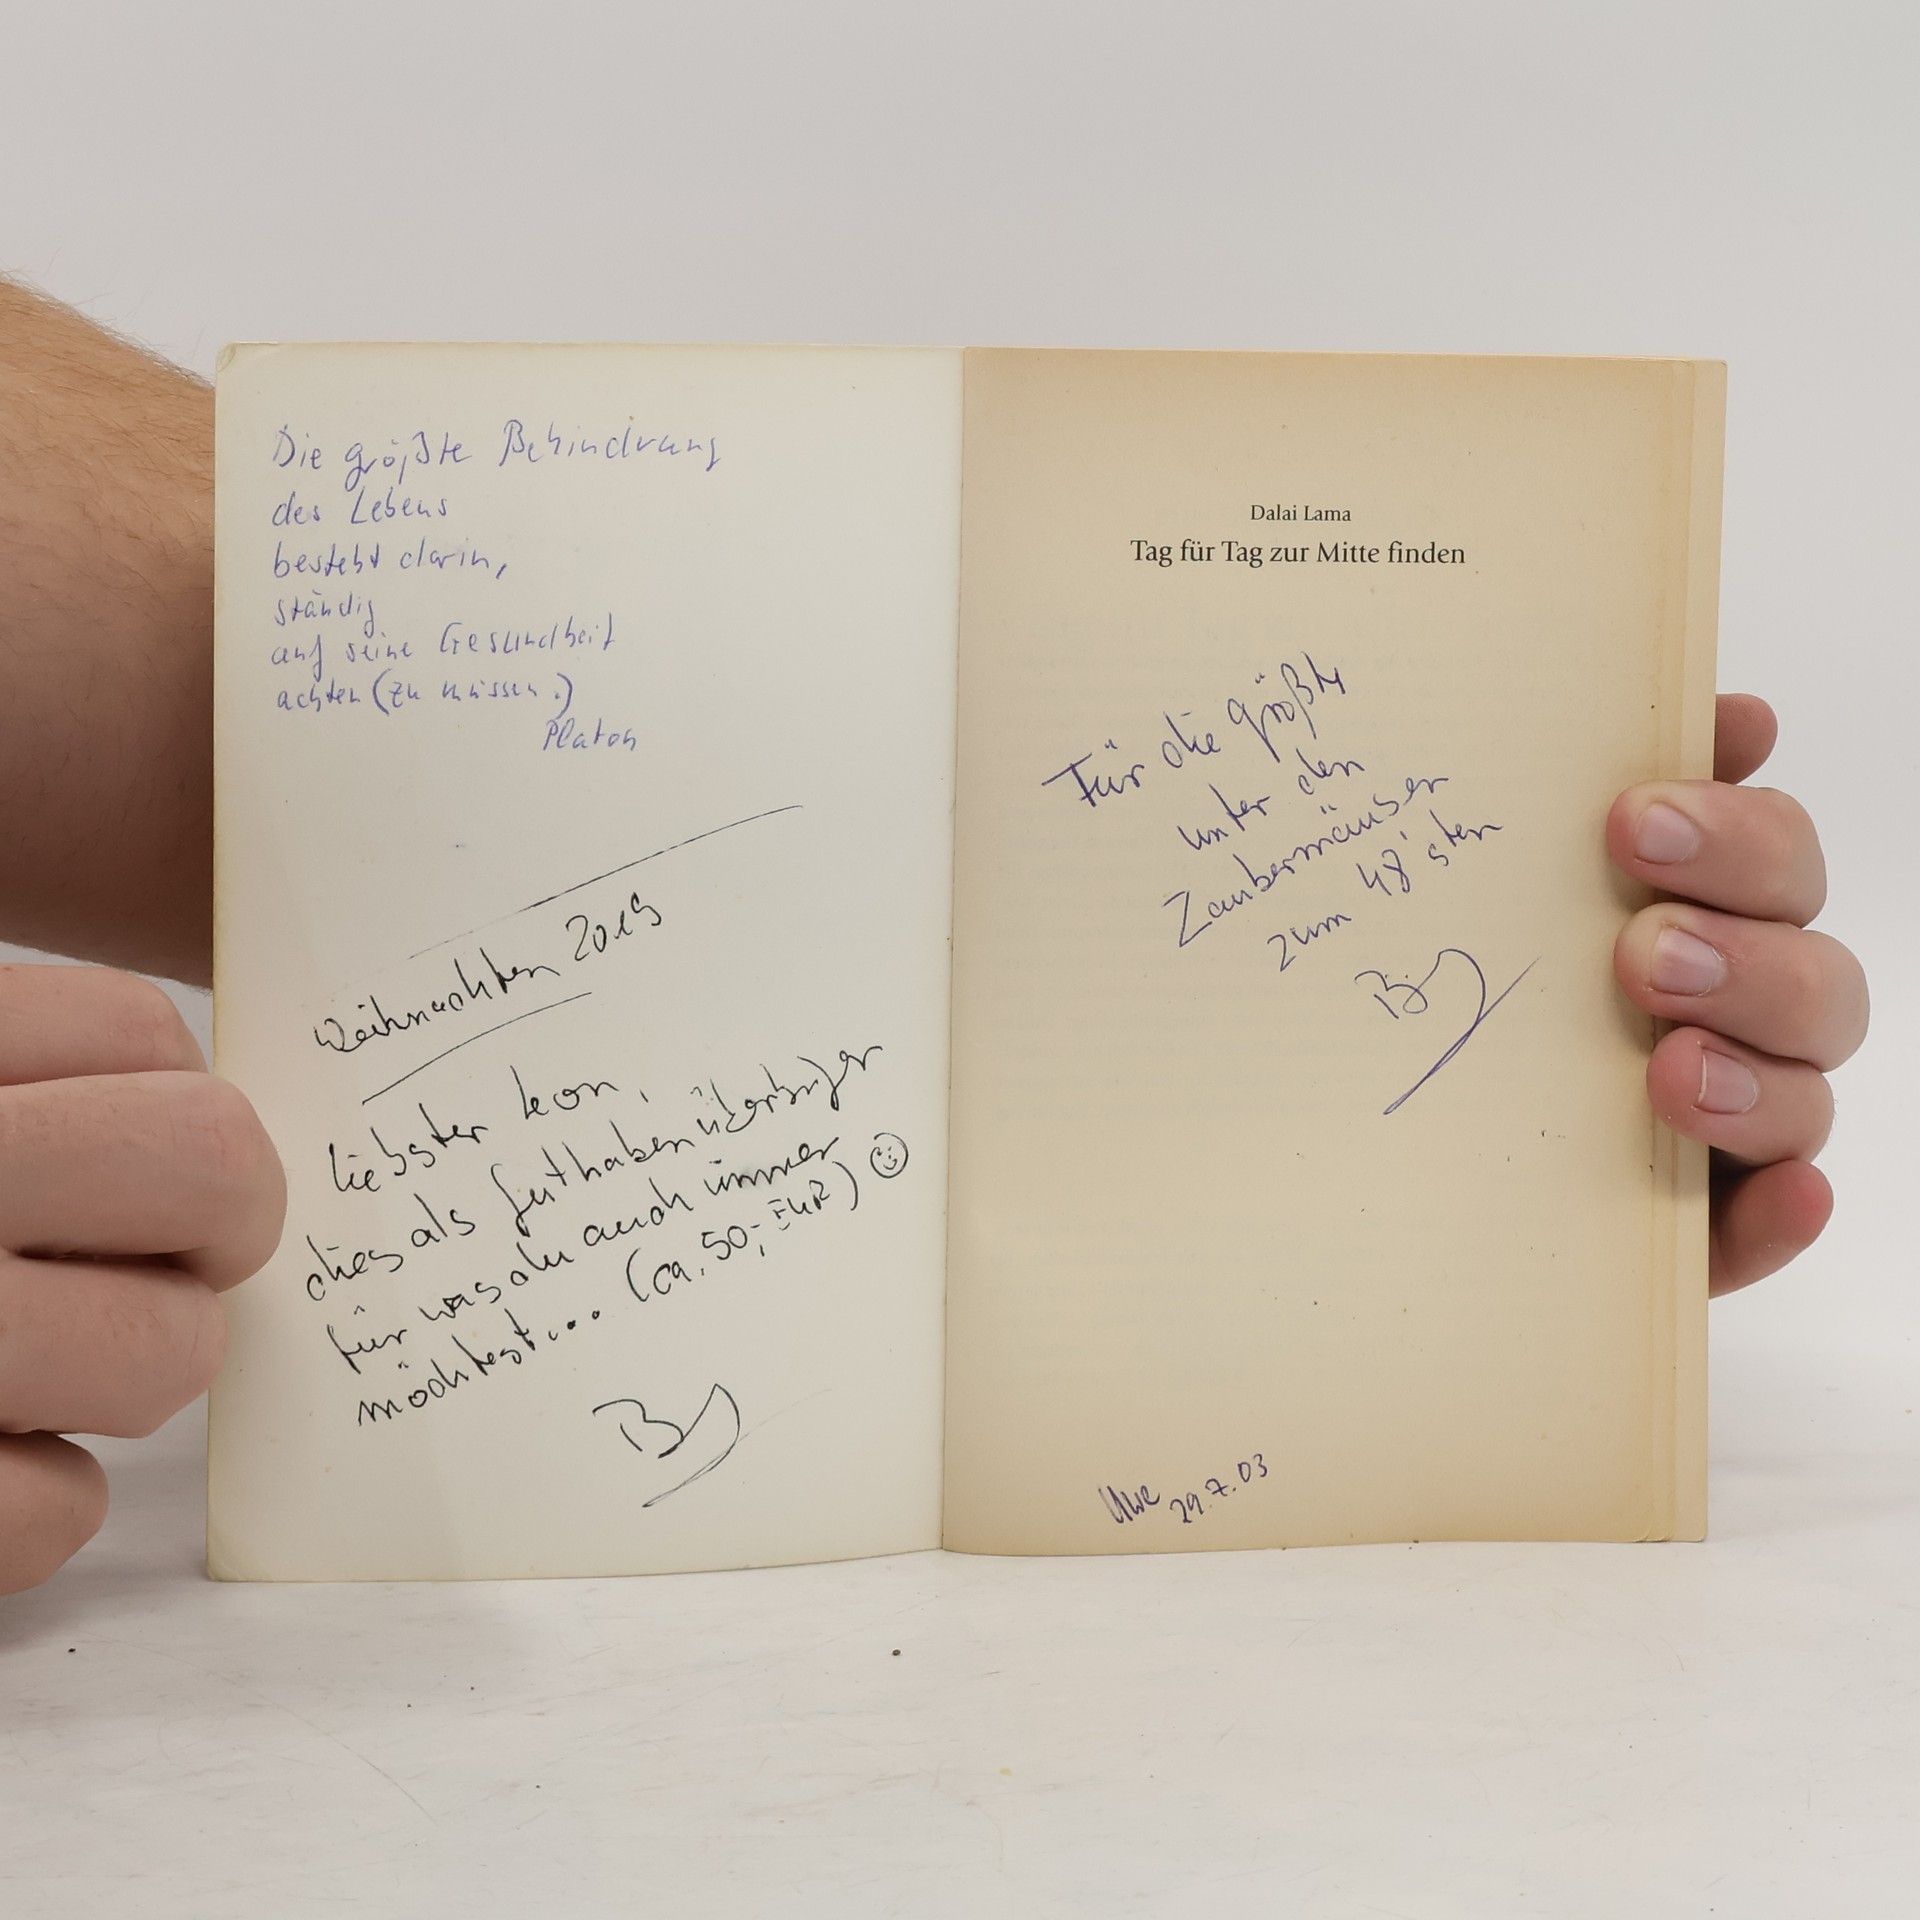 Die größte Behindrung
des Lebens
besteht darin,
ständig
auf seine Gesundheit
achten (zu müssen.)
Platon
Weihnachten 2019
liebster Leon,
dies als Guthaben
für was du auch immer
möchtest... (ca. 50,- EUR)
B
Dalai Lama
Tag für Tag zur Mitte finden
Für die größte
unter den
Zaubermäusen
zum 48'sten
B
Uwe 29.7.03